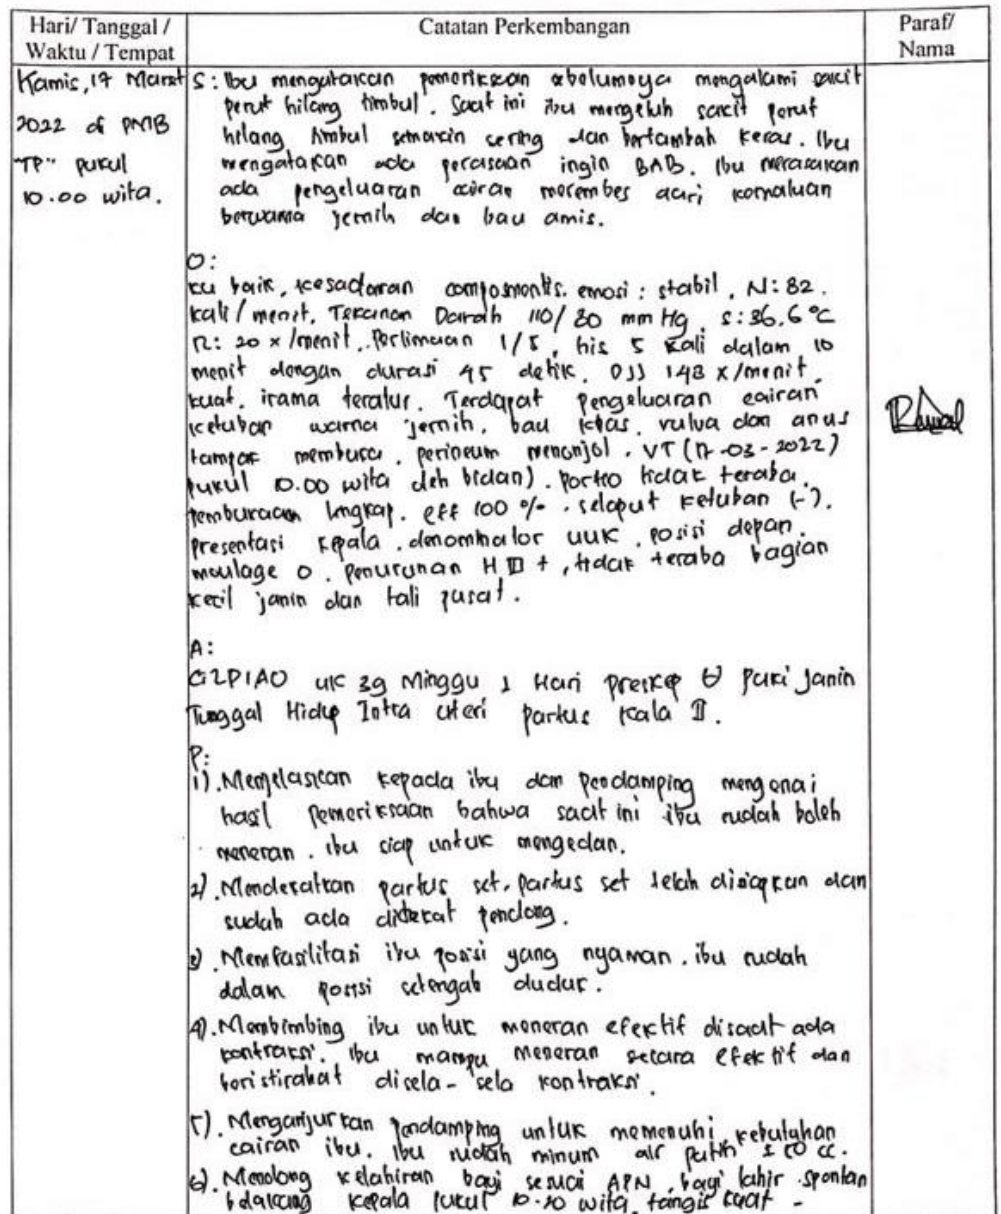 Hari/ Tanggal /
Waktu / Tempat
Catatan Perkembangan
Paraf/
Nama
Kamis, 17 Maret
2022 di PMB
"TP" pukul
10.00 wita.
S: Ibu mengatakan pemeriksaan sebelumnya mengalami sakit
perut hilang timbul. Saat ini ibu mengeluh sakit perut
hilang timbul semakin sering dan bertambah keras. Ibu
mengatakan ada perasaan ingin BAB. Ibu merasakan
ada pengeluaran cairan merembes dari kemaluan
berwarna jernih dan bau amis.
O:
KU baik, kesadaran composmentis. emosi : stabil, N: 82
kali/menit. Tekanan Darah 110/80 mmHg. S: 36.6°C
R: 20 x/menit. Perlimaan 1/5, his 5 kali dalam 10
menit dengan durasi 45 detik. DJJ 148 x/menit.
kuat. irama teratur. Terdapat pengeluaran cairan
ketuban warna jernih, bau khas, vulva dan anus
tampak membuka. perineum menonjol. VT (17-03-2022)
pukul 10.00 wita oleh bidan). portio tidak teraba.
pembukaan lengkap. eff 100 %. selaput ketuban (-).
presentasi kepala. denominator uuk. posisi depan.
moulage 0. penurunan H III +, tidak teraba bagian
kecil janin dan tali pusat.
A:
G2P1A0 UK 39 Minggu 1 Hari Preskep U Puki Janin
Tunggal Hidup Intra Uteri partus Kala II.
P:
1). Menjelaskan kepada ibu dan pendamping mengenai
hasil pemeriksaan bahwa saat ini ibu sudah boleh
meneran. ibu siap untuk mengedan.
2). Mendekatkan partus set. partus set telah disiapkan dan
sudah ada didekat penolong.
3). Memfasilitasi ibu posisi yang nyaman. ibu sudah
dalam posisi setengah duduk.
4). Membimbing ibu untuk meneran efektif disaat ada
kontraksi. ibu mampu meneran secara efektif dan
beristirahat disela-sela kontraksi.
5). Menganjurkan pendamping untuk memenuhi kebutuhan
cairan ibu. ibu sudah minum air putih cc.
6). Menolong kelahiran bayi sesuai APN. bayi lahir spontan
belakang kepala pukul wita tangis kuat -